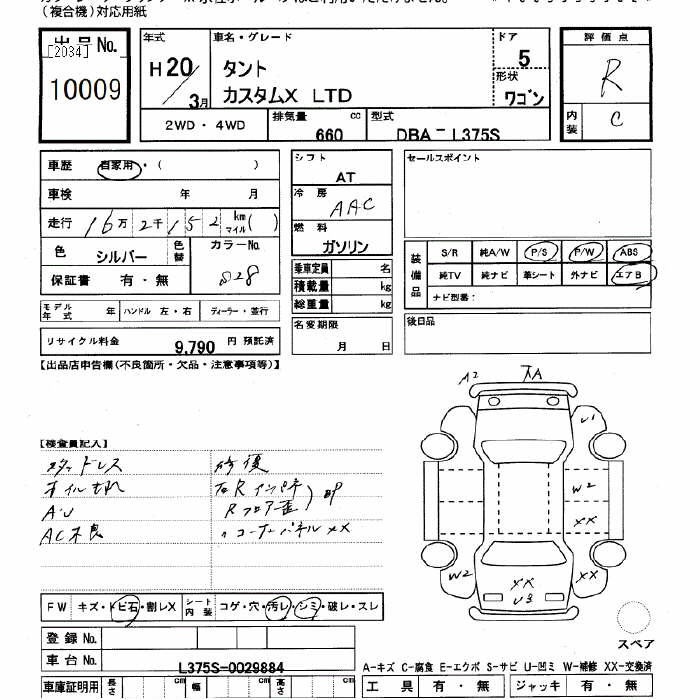 (複合機)対応用紙
出品No.
[2034]
10009
年式
H20/3月
車名・グレード
タント
カスタムX LTD
ドア
5
形状
ワゴン
評価点
R
内装
C
2WD・4WD
排気量
660 cc
型式
DBA-L375S
車歴 自家用・( )
車検 年 月
走行 16万2千152km マイル( )
色 シルバー 色替 カラーNo. 028
保証書 有・無
モデル年式 年 ハンドル 左・右 ディーラー・並行
リサイクル料金 9,790 円 預託済
シフト
AT
冷房
AAC
燃料
ガソリン
乗車定員 名
積載量 kg
総重量 kg
名変期限
月 日
セールスポイント
装備品
S/R 純A/W P/S P/W ABS
純TV 純ナビ 革シート 外ナビ エアB
ナビ型番:
後日品
【出品店申告欄(不良箇所・欠品・注意事項等)】
【検査員記入】
オイル
AC不良
修復
FW キズ・トビ石・割レX シート内装 コゲ・穴・汚レ・シミ・破レ・スレ
登録No.
車台No. L375S-0029884
車庫証明用 長さ cm 幅 cm 高さ cm
A2
U1
W2
XX
W2
XX
U3
XX
スペア
A-キズ C-腐食 E-エクボ S-サビ U-凹ミ W-補修 XX-交換済
工具 有・無 ジャッキ 有・無